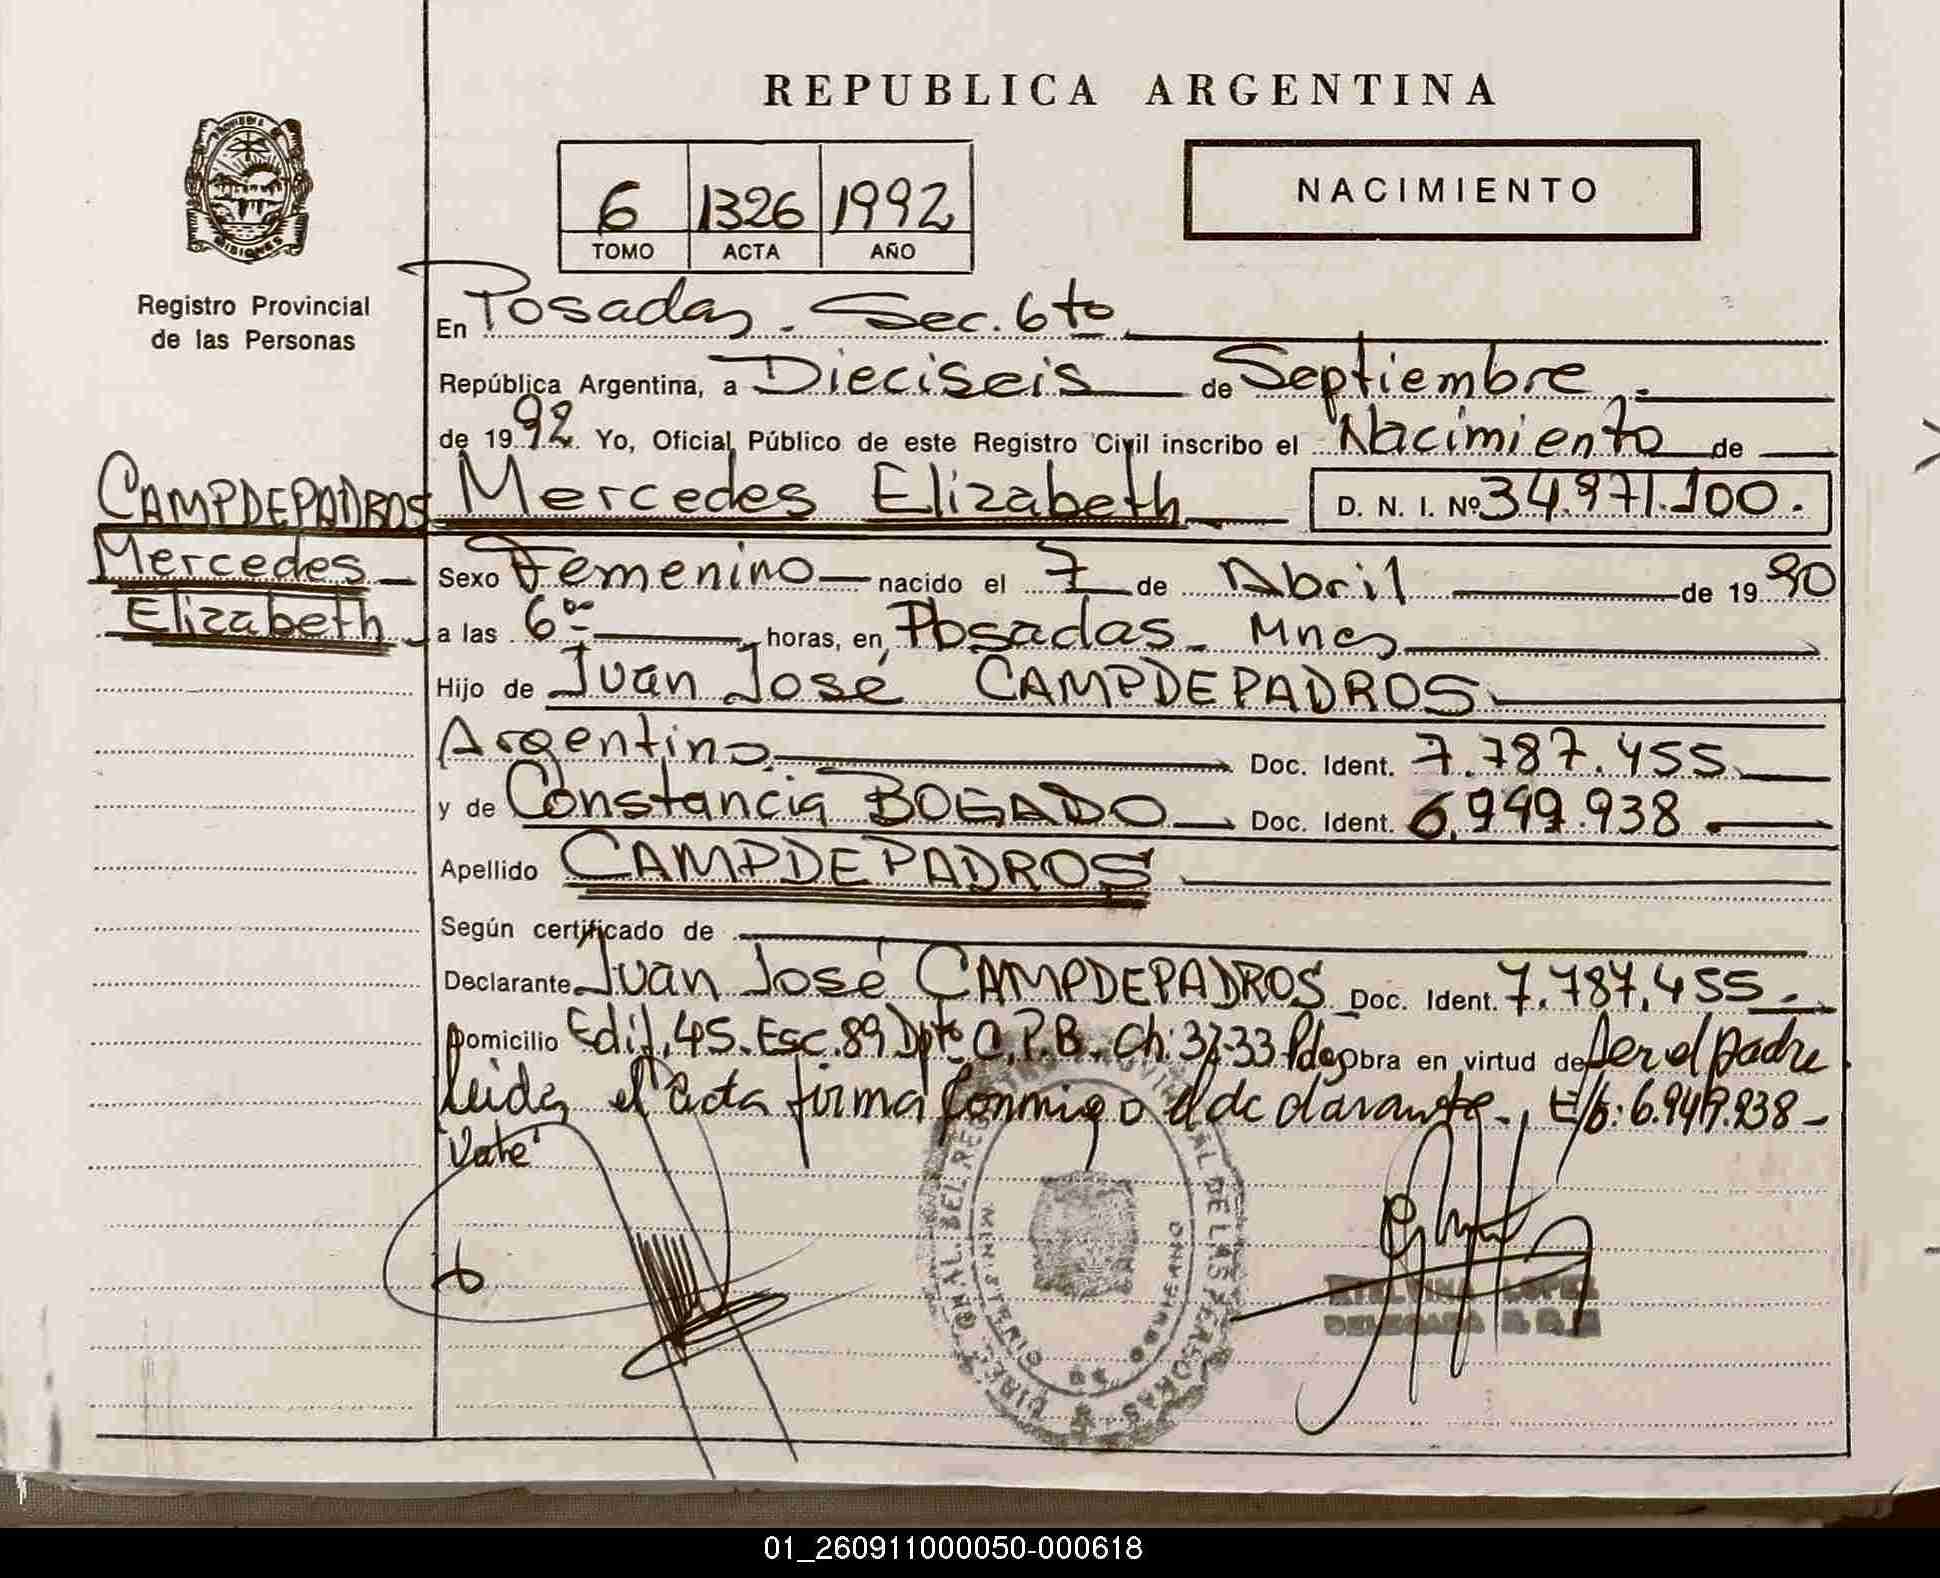 REPUBLICA ARGENTINA
6 1326 1992
TOMO ACTA AÑO
NACIMIENTO
Registro Provincial
de las Personas
En Posadas. Sec. 6to
República Argentina, a Dieciseis de Septiembre.
de 1992. Yo, Oficial Público de este Registro Civil inscribo el Nacimiento de
CAMPDEPADROS
Mercedes
Elizabeth
Mercedes Elizabeth D. N. I. Nº 34.971.100.
Sexo Femenino nacido el 7 de Abril de 1990
a las 6 horas, en Posadas. Mnes
Hijo de Juan José CAMPDEPADROS
Argentino Doc. Ident. 7.787.455
y de Constancia BOGADO Doc. Ident. 6.949.938
Apellido CAMPDEPADROS
Según certificado de
Declarante Juan José CAMPDEPADROS Doc. Ident. 7.787.455.
Domicilio Edif. 45. Esc. 89 Dpto C. P.B. Ch: 32-33 Pdas obra en virtud de ser el padre
leida el acta firma conmigo el declarante. E/b: 6.949.938-
Vale
DIREC. GRAL. DEL REG. PROVINCIAL DE LAS PERSONAS
MINISTERIO DE GOBIERNO
LOPEZ
DELEGADA
01_260911000050-000618